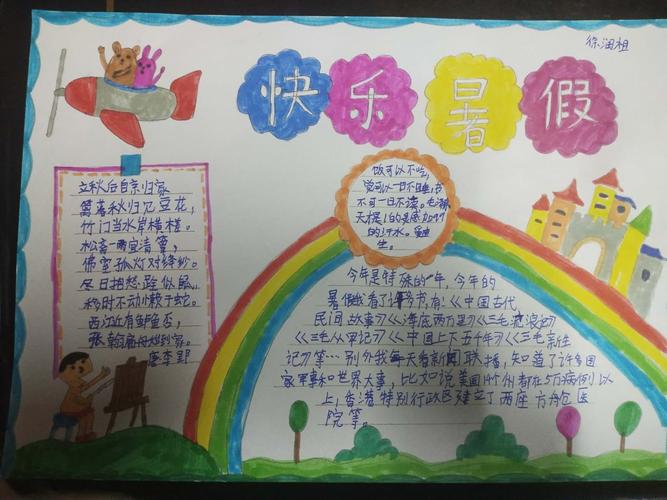 徐润祖
快乐暑假
立秋后自京归家
篱落秋归见豆花,
竹门当水岸横槎。
松斋一雨宜清簟,
佛室孤灯对绛纱。
尽日抱愁跧似鼠,
移时不动懒于蛇。
西江近有鲈鱼否,
张翰扁舟始到家。
唐李郢
饭可以不吃,
觉可以一日不睡,书
不可一日不读。毛泽
天才是1的灵感加99
的汗水。爱迪
生。
今年是特殊的一年,今年的
暑假我看了许多书有!《中国古代
民间故事》《海底两万里》《三毛流浪记》
《三毛从军记》《中国上下五千年》《三毛新生
记》等…别外我每天看新闻联播,知道了许多国
家军事和世界大事,比如说美国个州都在5万病例以
上,香港特别行政区建立了两座方舱医
院等。